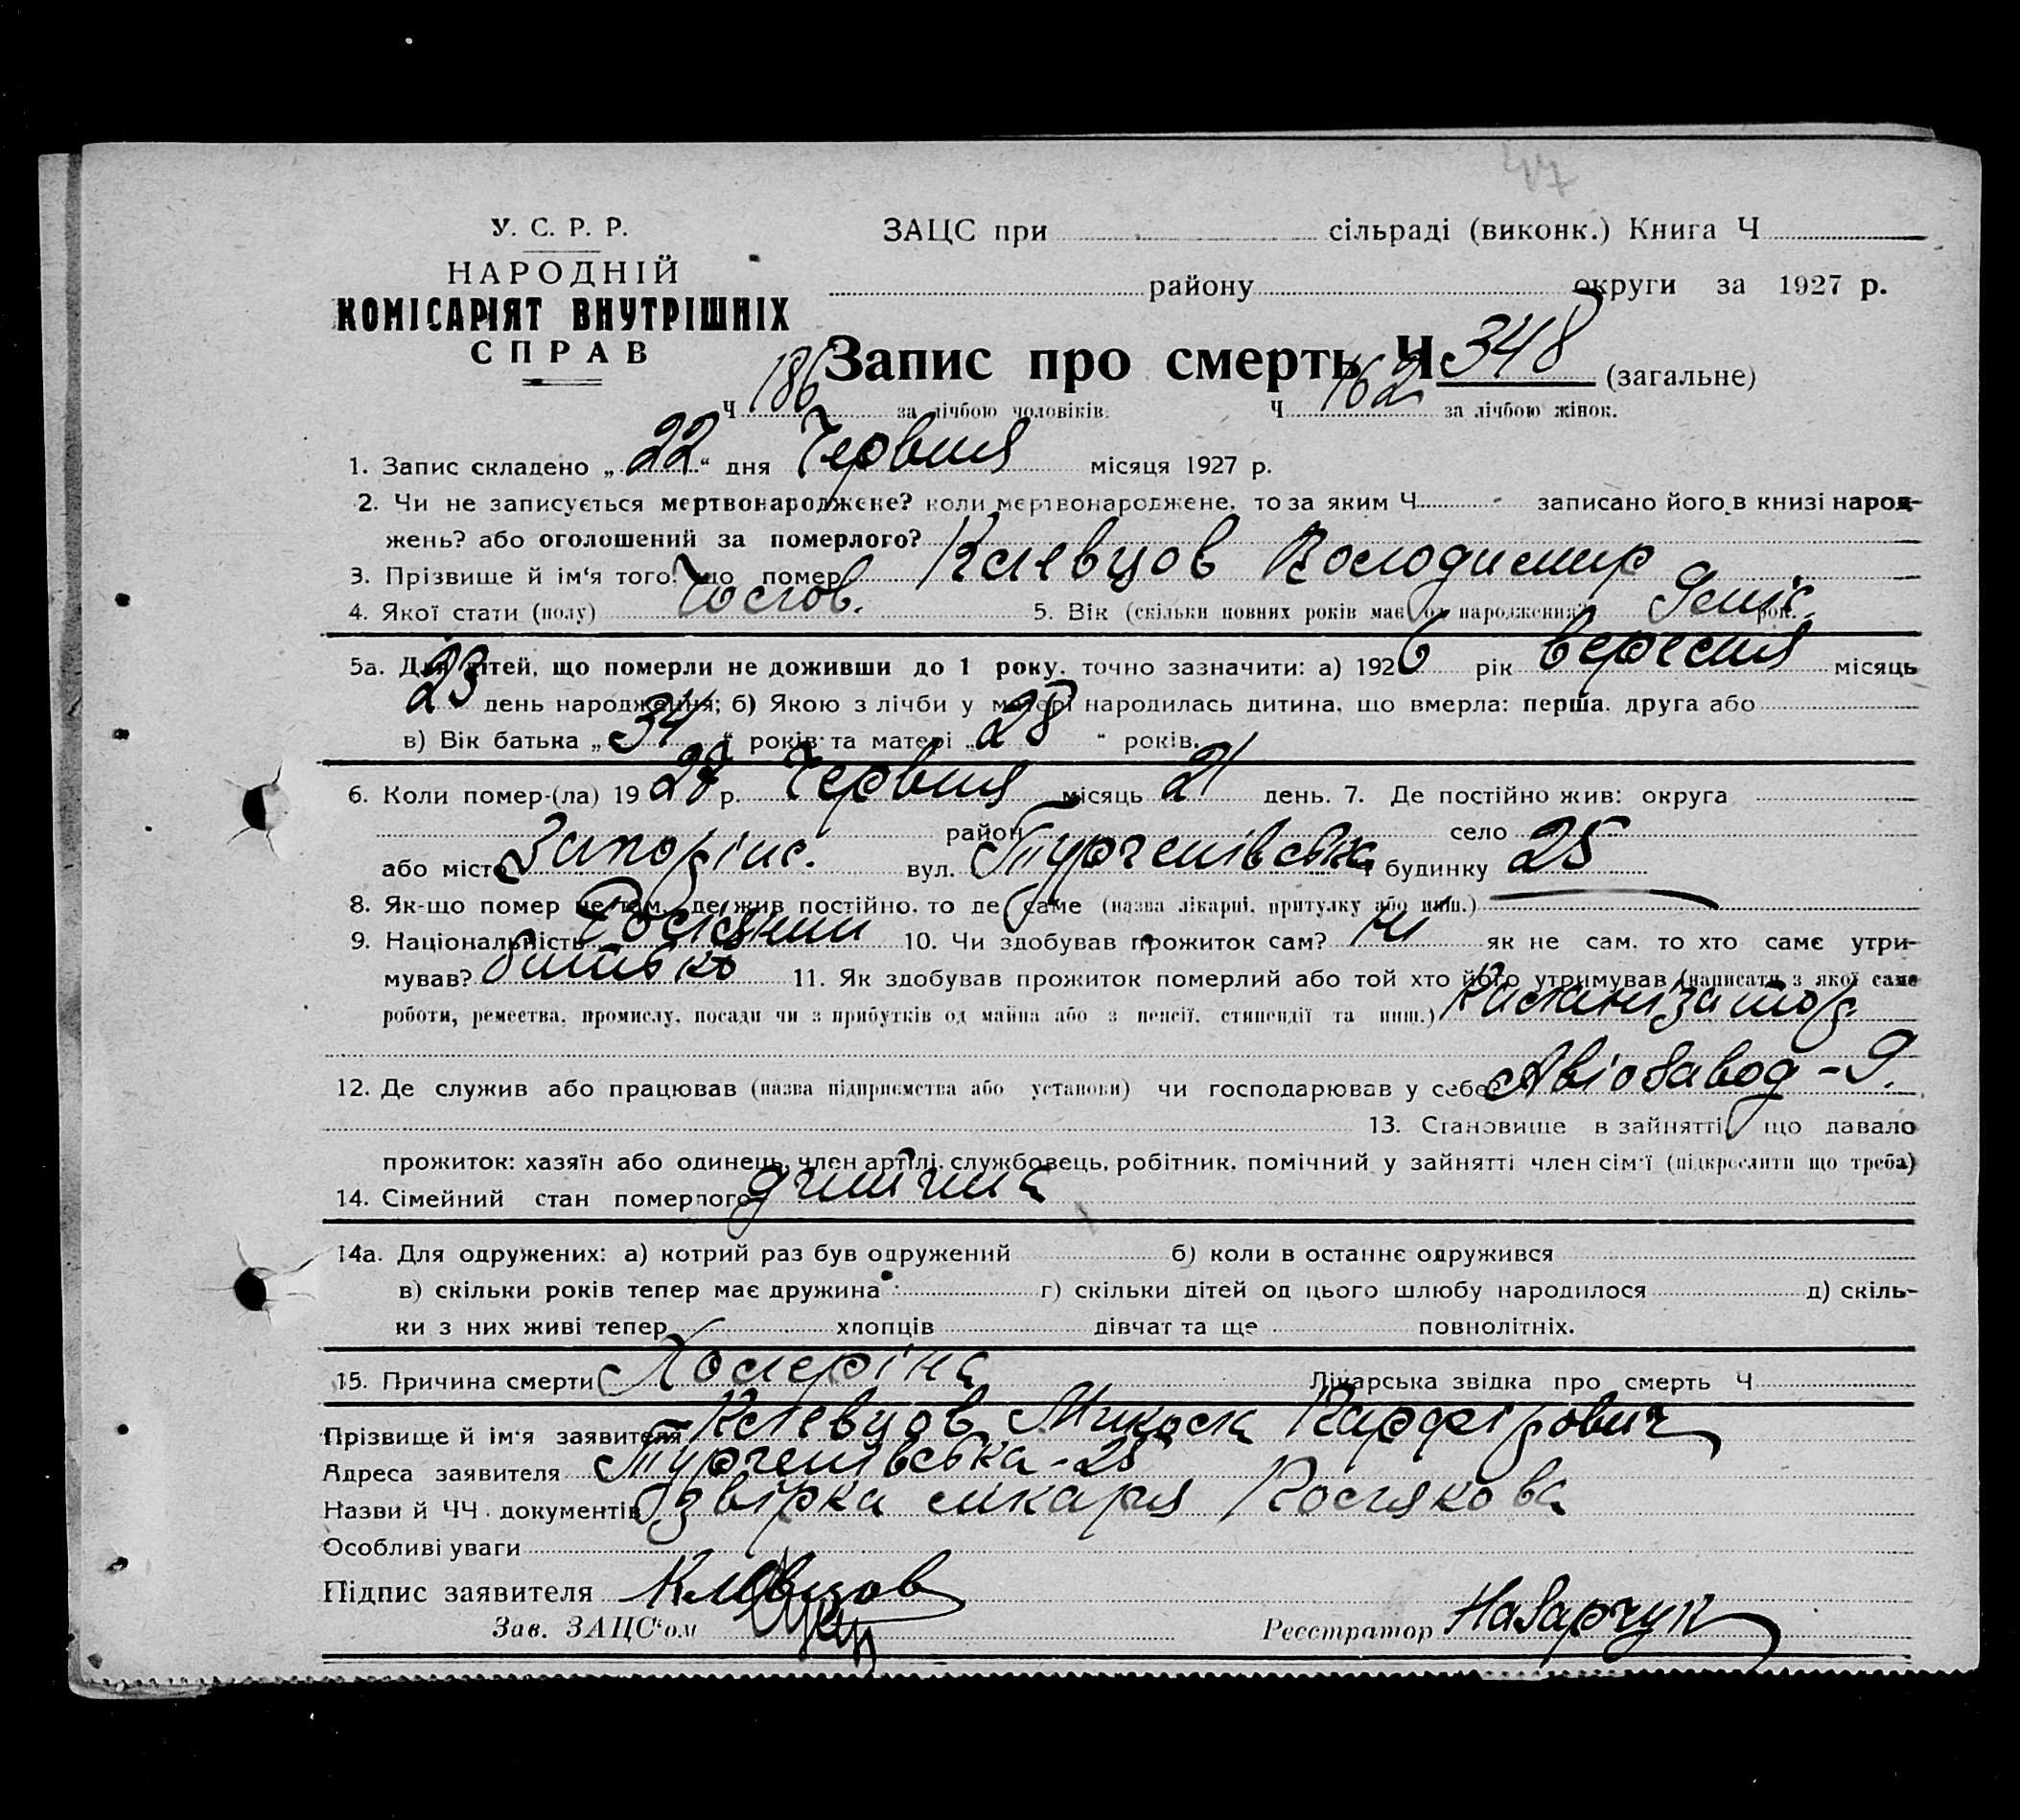 47
У. С. Р. Р.
НАРОДНІЙ
КОМІСАРІЯТ ВНУТРІШНІХ
СПРАВ
ЗАЦС при сільраді (виконк.) Книга Ч
району округи за 1927 р.
Запис про смерть Ч 348 (загальне)
Ч 186 за лічбою чоловіків. Ч 162 за лічбою жінок.
1. Запис складено „22“ дня Червня місяця 1927 р.
2. Чи не записується мертвонароджене? коли мертвонароджене, то за яким Ч - записано його в книзі народ-
жень? або оголошений за померлого?
3. Прізвище й ім'я того, що помер Клевцов Володимир
4. Якої стати (полу) Чолов. 5. Вік (скільки повних років має од народження) 9 міс. рок.
5а. Для дітей, що померли не доживши до 1 року, точно зазначити: а) 1926 рік вересня місяць
23 день народження; б) Якою з лічби у матері народилась дитина, що вмерла: перша, друга або
в) Вік батька „34“ років та матері „28“ років.
6. Коли помер-(ла) 1927 р. Червня місяць 21 день. 7. Де постійно жив: округа
район село
або місто вул. Тургенівська будинку 25
8. Як-що помер не там, де жив постійно, то де саме (назва лікарні, притулку або инш.)
9. Національність 10. Чи здобував прожиток сам? Ні як не сам, то хто саме утри-
мував? батько 11. Як здобував прожиток померлий або той хто його утримував (написати з якої саме
роботи, ремества, промислу, посади чи з прибутків од майна або з пенсії, стипендії та инш.)
12. Де служив або працював (назва підприємства або установи) чи господарював у себе? Авіозавод - 9.
13. Становище в зайнятті, що давало
прожиток: хазяїн або одинець, член артілі, службовець, робітник, помічний у зайнятті член сім'ї (підкреслити що треба)
14. Сімейний стан померлого
14а. Для одружених: а) котрий раз був одружений б) коли в останнє одружився
в) скільки років тепер має дружина г) скільки дітей од цього шлюбу народилося д) скіль-
ки з них живі тепер хлопців дівчат та ще повнолітніх.
15. Причина смерти Холеріна Лікарська звідка про смерть Ч
Прізвище й ім'я заявителя Клевцов Микола Парфірович
Адреса заявителя Тургенівська - 25
Назви й ЧЧ документів Дзвірка лікаря Полякова
Особливі уваги
Підпис заявителя Клевцов
Зав. ЗАЦС'ом Реєстратор Назарчук